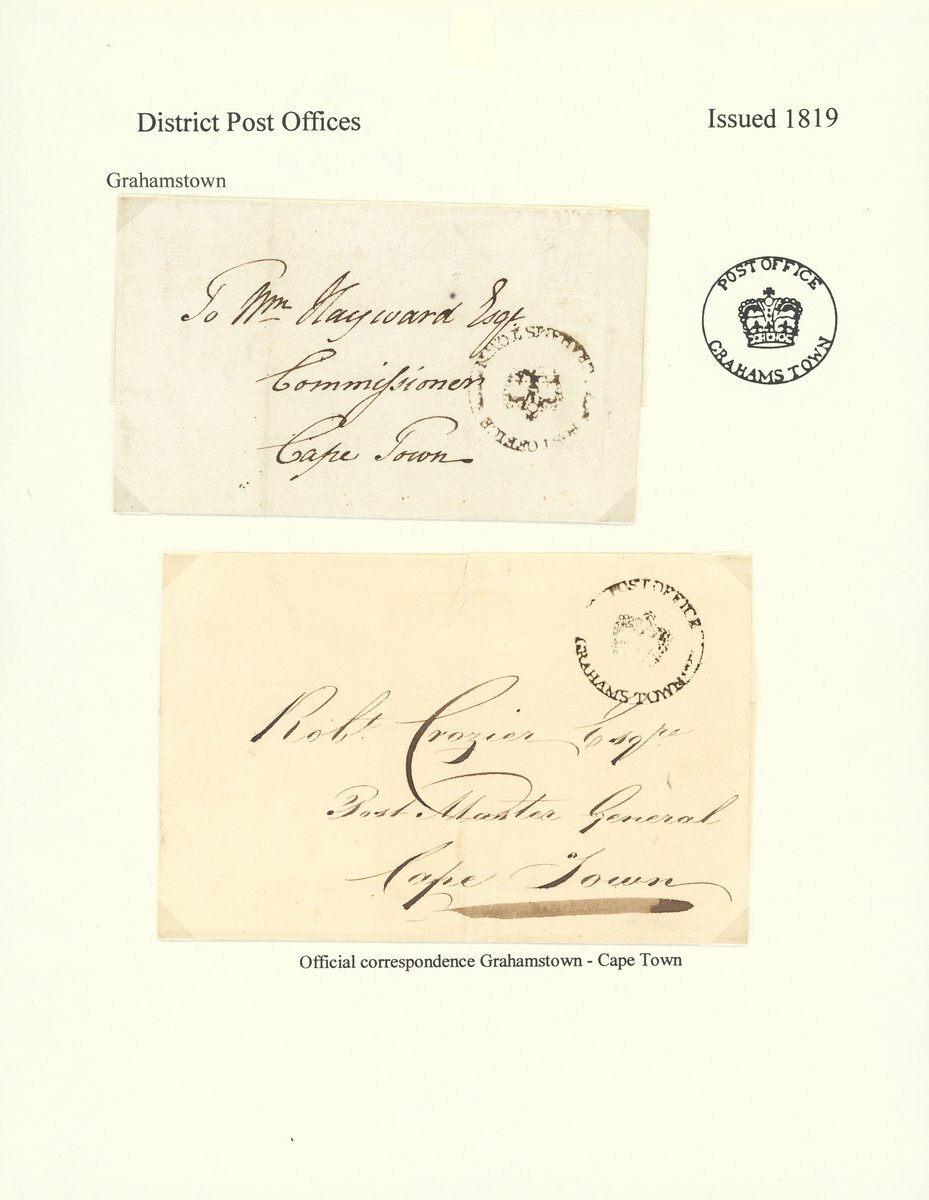 District Post Offices
Issued 1819
Grahamstown
To Wm Hayward Esqr
Commissioner
Cape Town
GRAHAMS TOWN
POST OFFICE
POST OFFICE
GRAHAMS TOWN
POST OFFICE
GRAHAMS TOWN
Robt. Crozier Esqre
Post Master General
Cape Town
Official correspondence Grahamstown - Cape Town